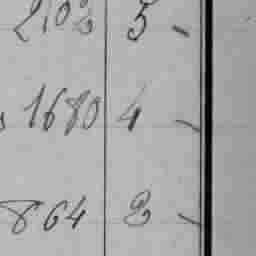 2102 5 -
1680 4 -
864 2 -